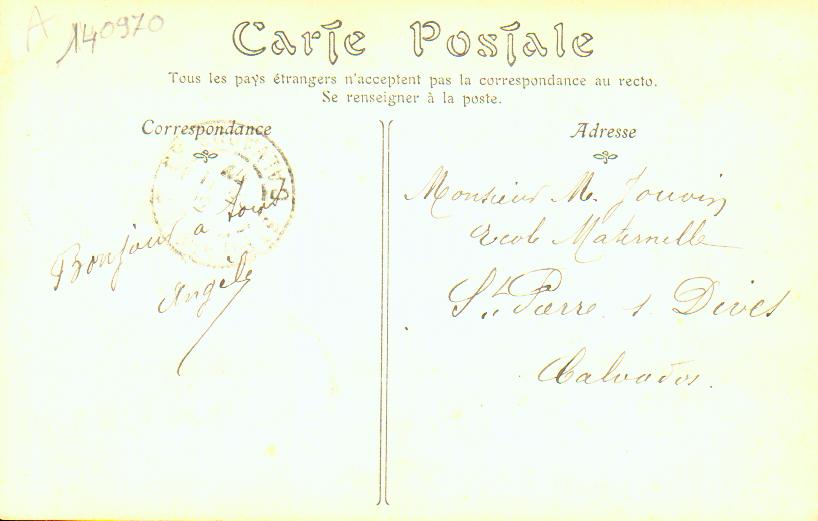 A
140970
Carte Postale
Tous les pays étrangers n'acceptent pas la correspondance au recto.
Se renseigner à la poste.
Correspondance
Bonjour a tous
Angèle
Adresse
Monsieur M. Jouvin
Ecole Maternelle
St Pierre s. Dives
Calvados.